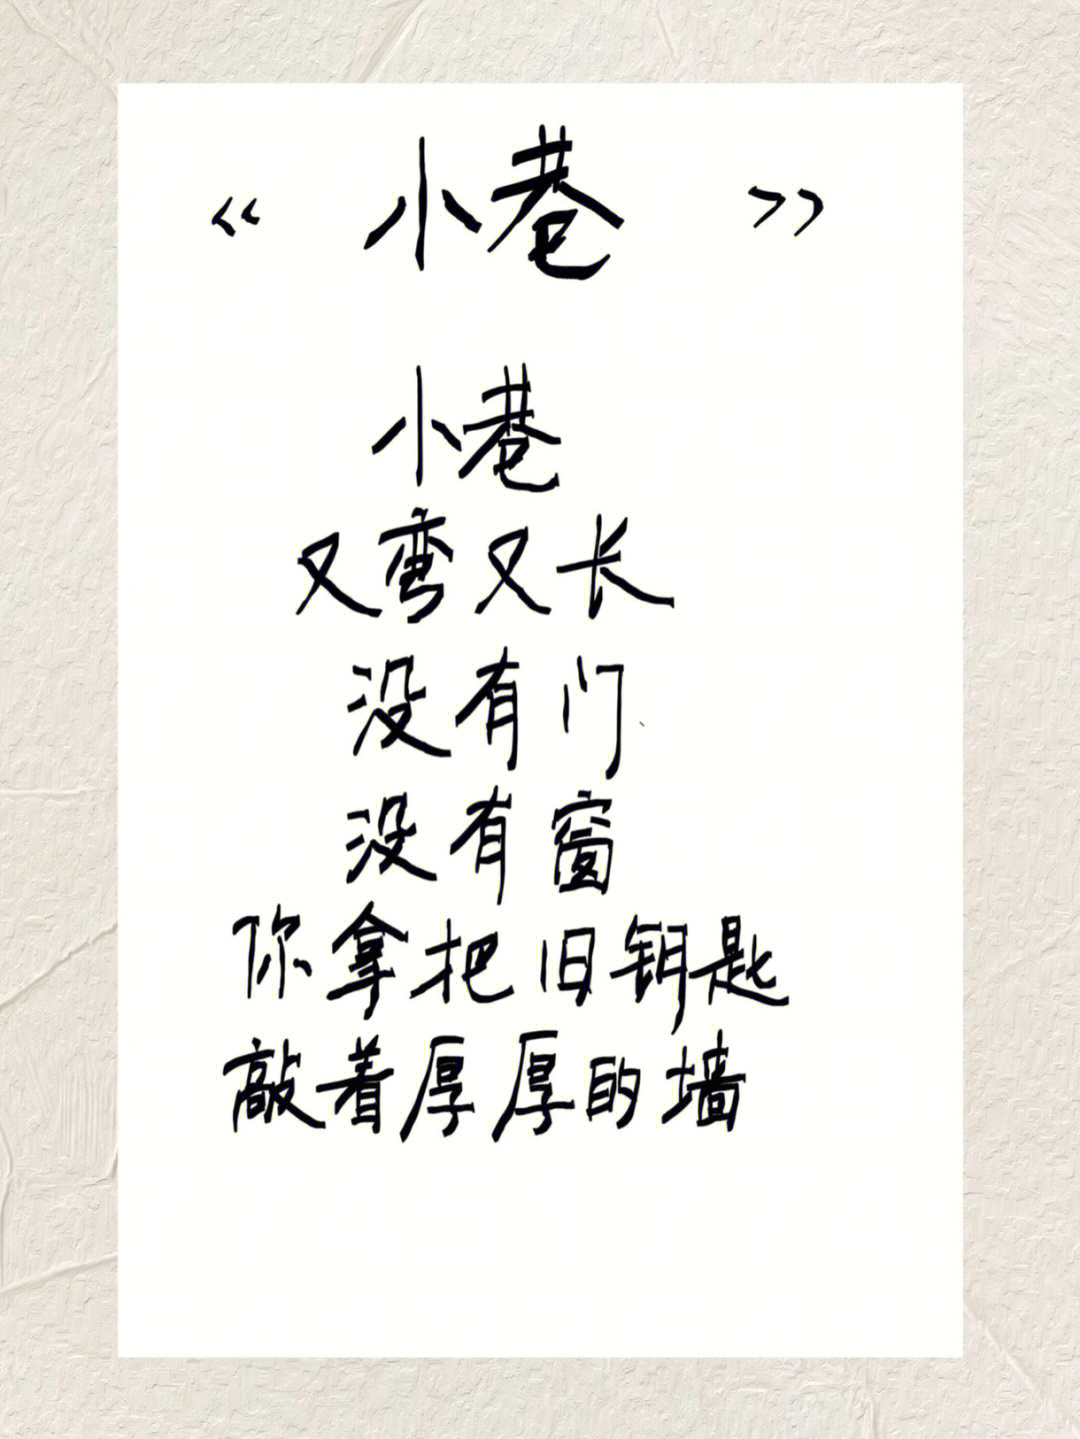 《 小巷 》
小巷
又弯又长
没有门
没有窗
你拿把旧钥匙
敲着厚厚的墙